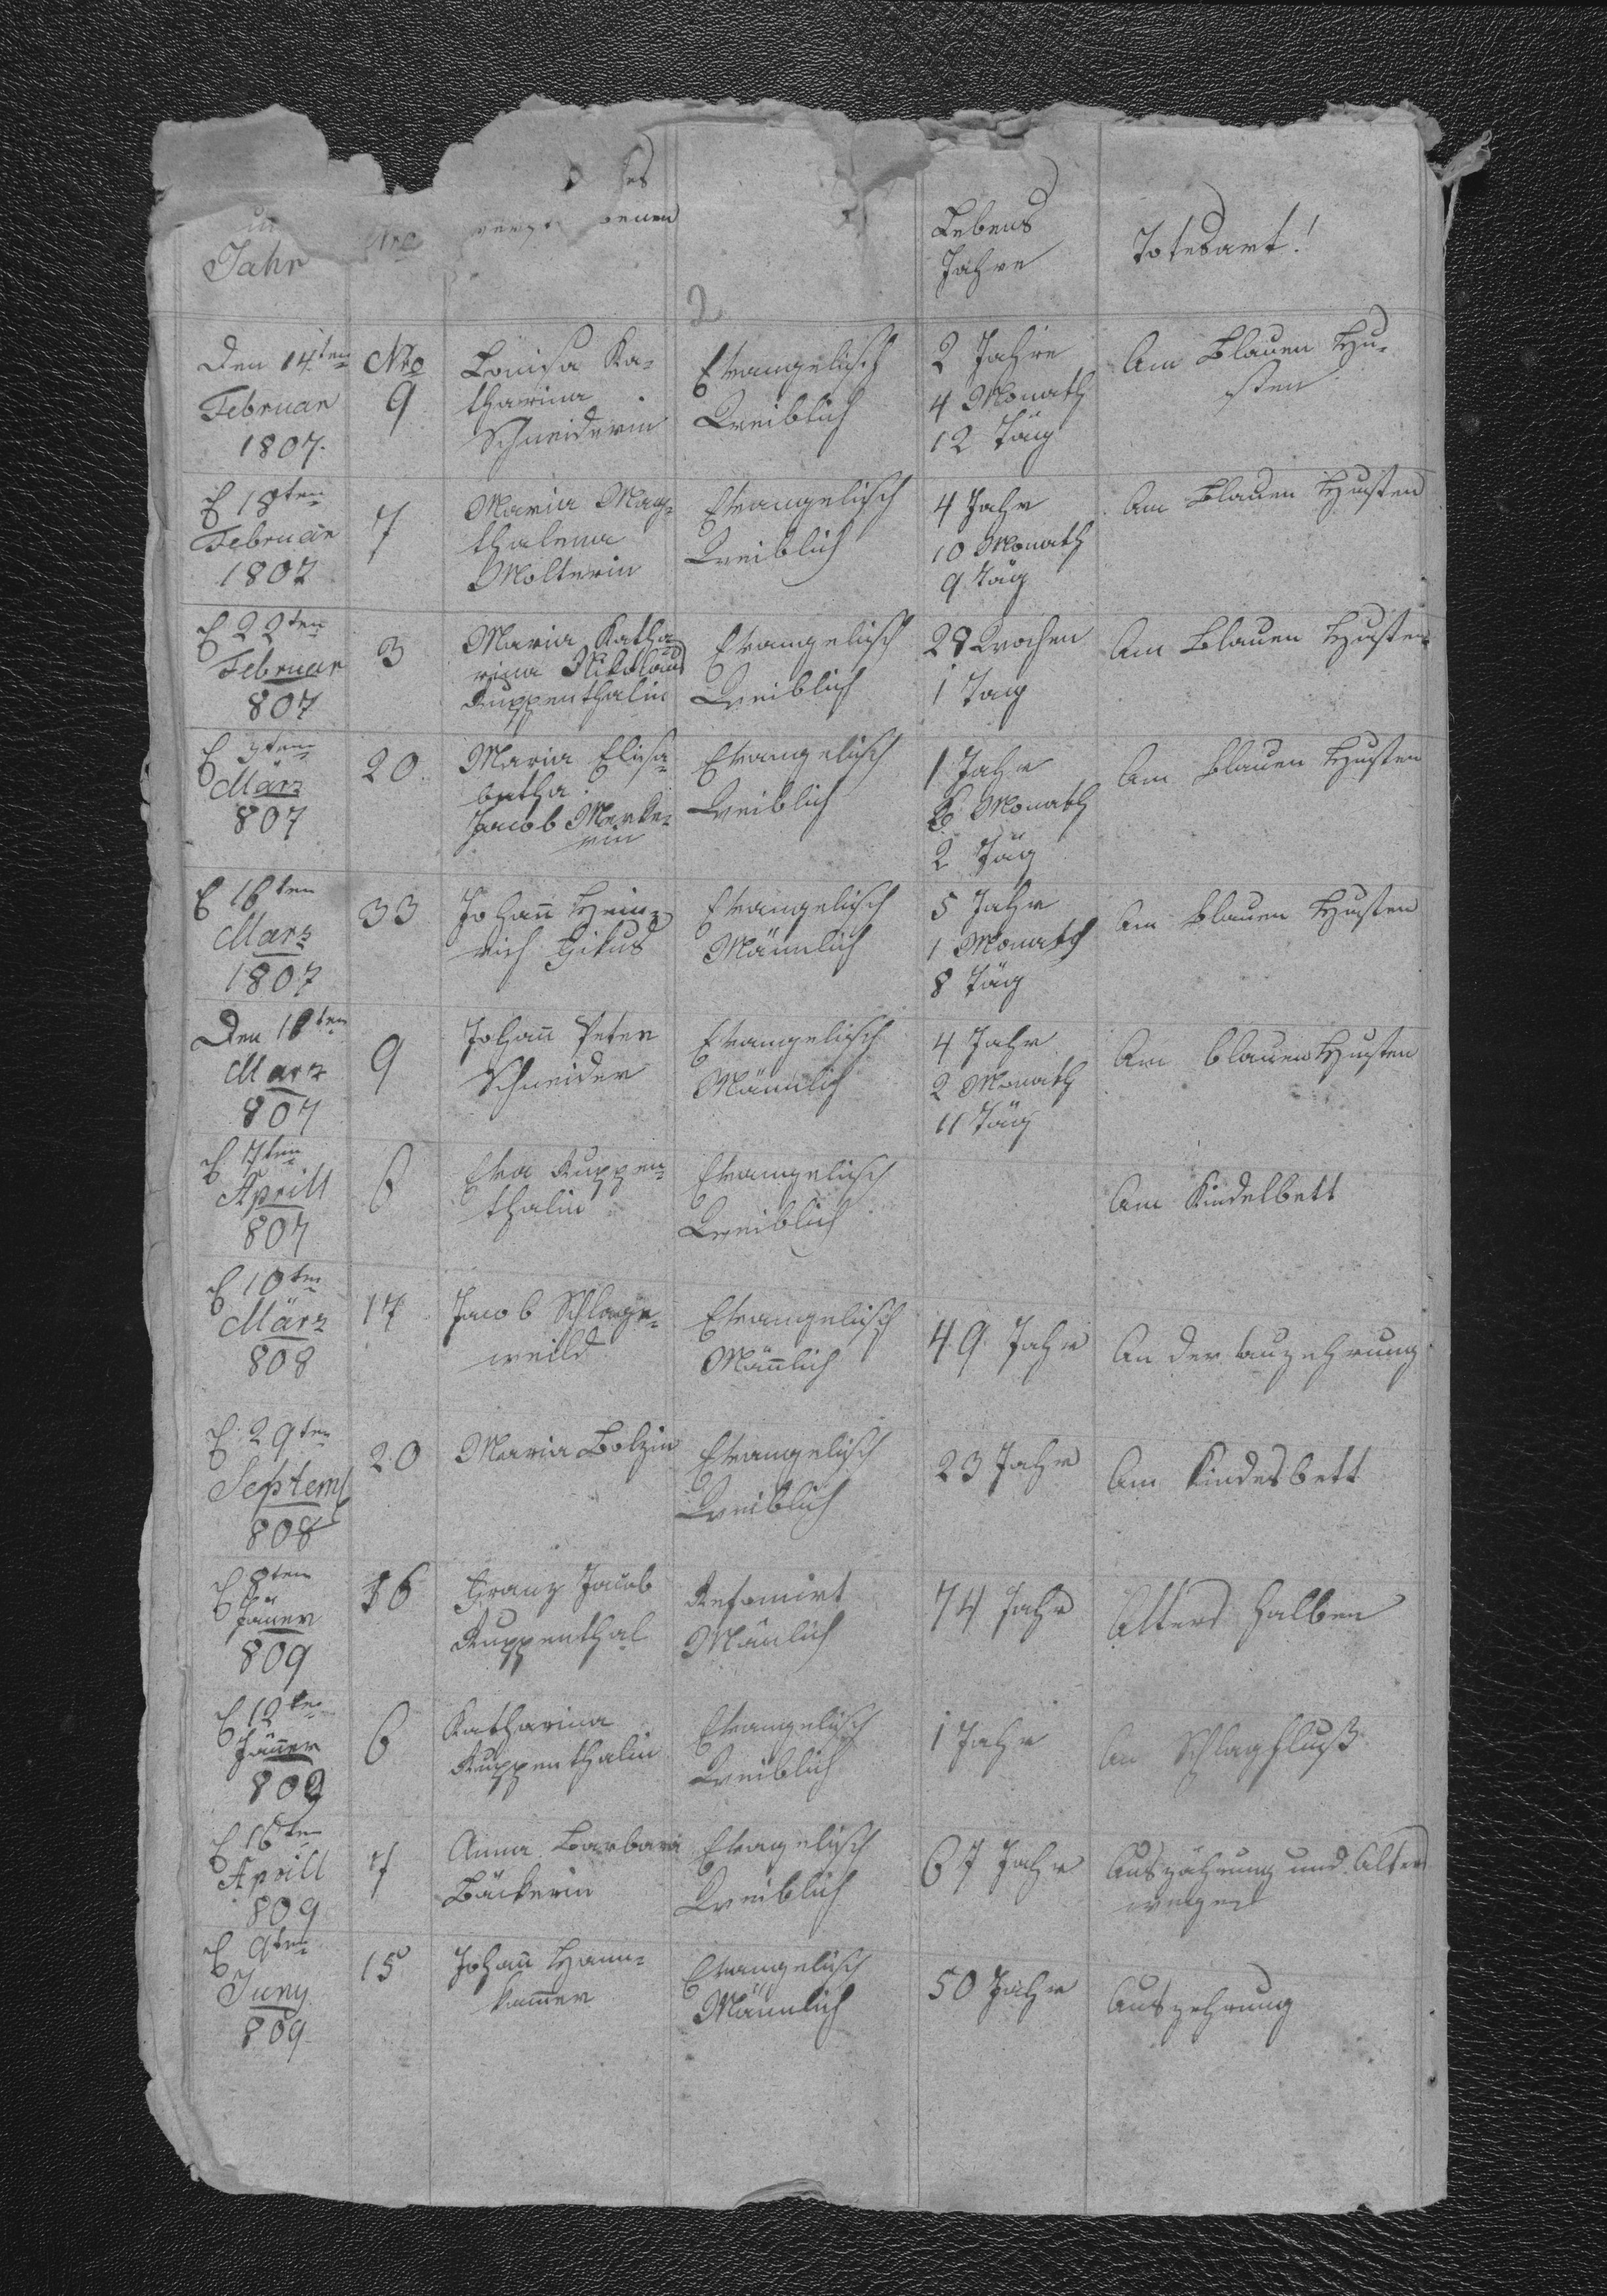 Jahr
Nro
benen
Lebens
Jahre
Totesart!
2
Den 14ten
Februar
1807.
Nro
9
Louisa Ka-
tharina
Schneiderin
Evangelisch
Weiblich
2 Jahre
4 Monath
12 Täg
Am Blauen Hu-
sten
18ten
Februar
1807
7
Maria Mag-
thalena
Molterin
Evangelisch
Weiblich
4 Jahr
10 Monath
9 Täg
Am Blauen Husten
22ten
Februar
807
3
Maria Katha
rina Nikolaus
Ruppenthalin
Evangelisch
Weiblich
28 Wochen
1 Tag
Am Blauen Husten
März
807
20
Maria Elisa-
betha
Jacob
Evangelisch
Weiblich
1 Jahr
6 Monath
2 Täg
Am blauen Husten
16ten
Marz
1807
33
Johan̄ Hein-
rich
Evangelisch
Männlich
5 Jahr
1 Monath
8 Täg
Am blauen Husten
Den 18ten
Marz
807
9
Johan̄ Peter
Schneider
Evangelisch
Mänlich
4 Jahr
2 Monath
11 Täg
Am blauen Husten
7ten
Aprill
807
6
Eva Ruppen-
thalin
Evangelisch
Weiblich
Am Kindelbett
10ten
März
808
17
Jacob Schlage-
weild
Evangelisch
Män̄lich
49 Jahr
An der auzehrung
29ten
Septemb
808
20
Maria Bolzin
Evangelisch
Weiblich
23 Jahr
Am Kindesbett
8ten
Jäner
809
16
Franz Jacob
Ruppenthal
Refomirt
Mänlich
74 Jahr
Alters halben
12ten
Jän̄er
809
6
Katharina
Ruppenthalin
Evangelisch
Weiblich
1 Jahr
An Schlagfluß
16ten
Aprill
809
7
Anna Barbara
Bäckerin
Evagelisch
Weiblich
67 Jahr
Auszährung und Alters
wegen
9ten
Juny
809
15
Johan̄ Ham-
kam̄er
Evangelisch
Männlich
50 Jahr
Auszehrung